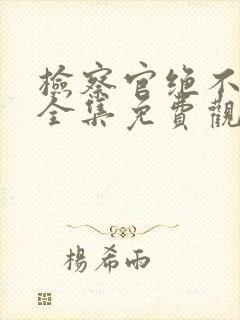 檢察官绝不
全集免費觀
楊希雨